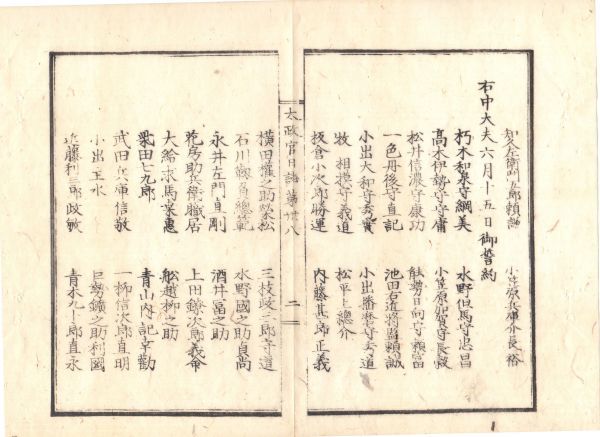 知久左衛門五郎頼謙 小笠原兵庫介長裕
右中大夫六月十五日御誓約
朽木和泉守綱美 水野但馬守忠昌
高木伊勢守守庸 小笠原加賀守長毅
松井信濃守康功 能勢日向守頼富
一色丹後守直記 池田右近将監頼誠
小出大和守秀實 小出播磨守
牧 相模守義道 松平上總介
板倉小次郎勝運 内藤甚郎正義
太政官日誌第廿八 二
横田権之助榮松 三枝政二郎守道
石川 總範 水野國之助貞尚
永井左門直剛 酒井富之助
花房助兵衛職居 上田鐐次郎義命
大嶋求馬 船越柳之助
粟田七九郎 青山内記幸勸
武田兵庫信敬 一柳信次郎直明
小出主水 巨勢鐄之助利國
近藤利三郎政敏 青木九十郎直永